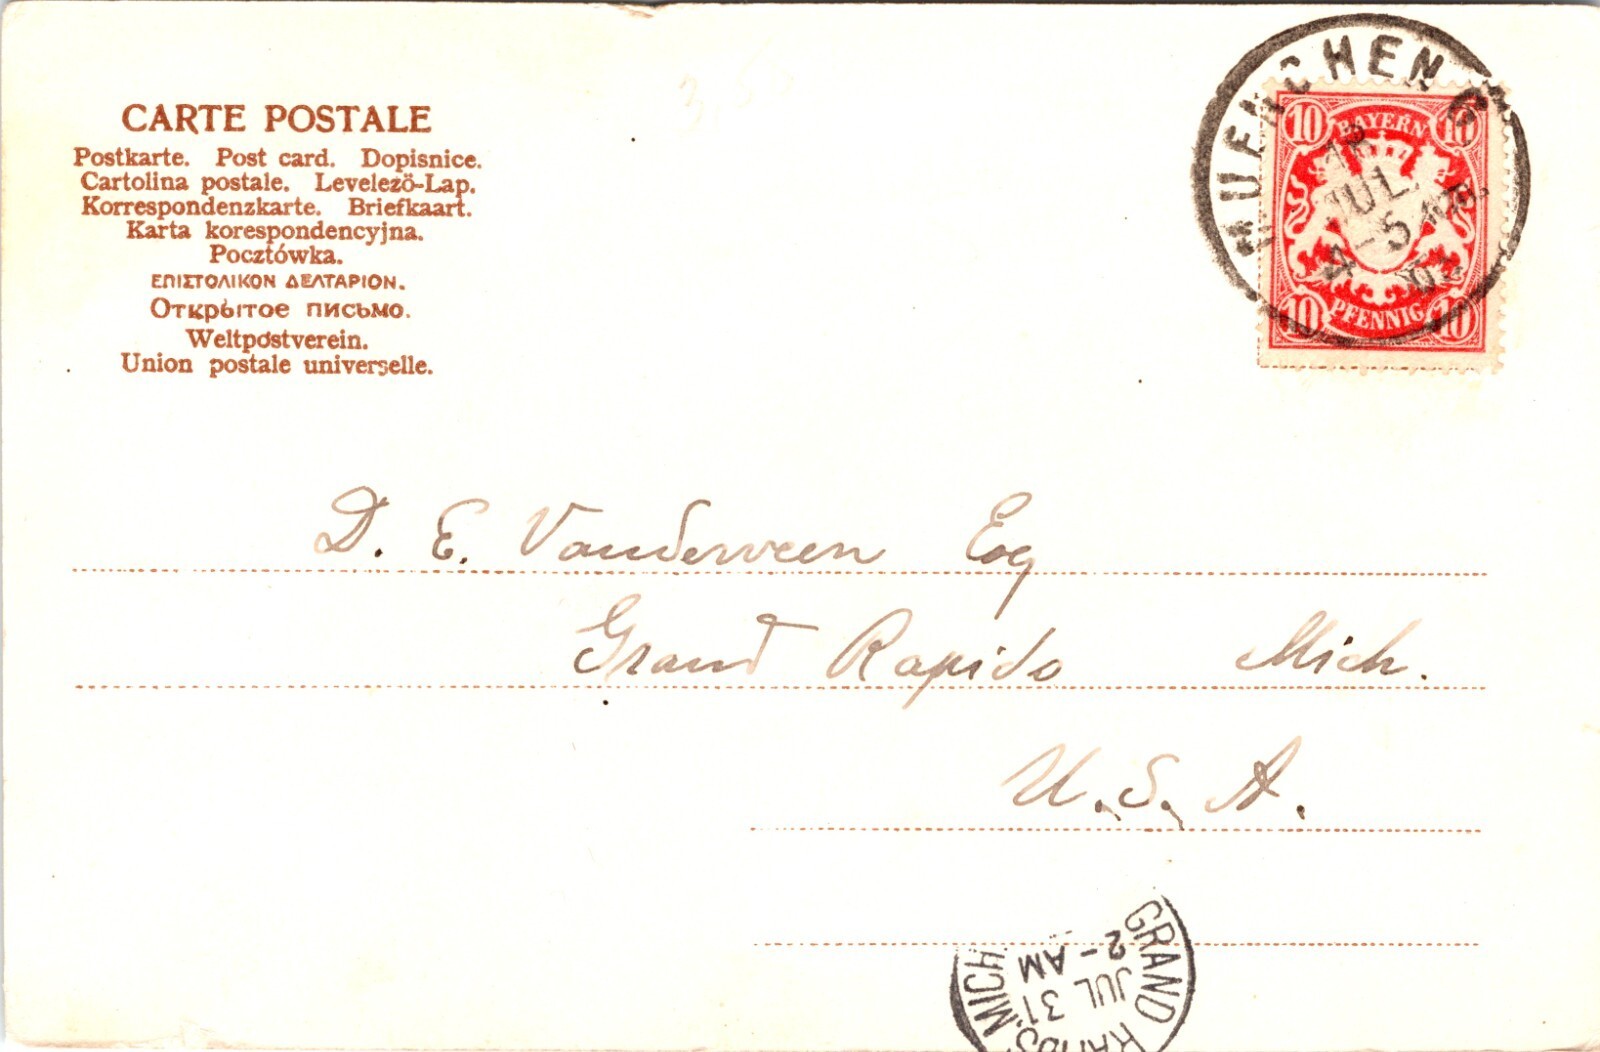 CARTE POSTALE
Postkarte. Post card. Dopisnice.
Cartolina postale. Levelező-Lap.
Korrespondenzkarte. Briefkaart.
Karta korespondencyjna.
Pocztówka.
ΕΠΙΣΤΟΛΙΚΟΝ ΔΕΛΤΑΡΙΟΝ.
Открытое письмо.
Weltpostverein.
Union postale universelle.
MUENCHEN 6
10 BAYERN 10
18
JUL.
4-5 NM.
03
10 PFENNIG 10
D. E. Vanderveen Esq
Grand Rapids Mich.
U. S. A.
GRAND RAPIDS. MICH
JUL 31
2-AM